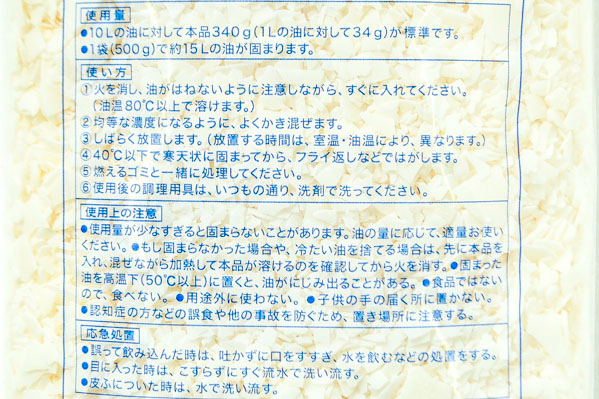 使用量
●10Lの油に対して本品340g(1Lの油に対して34g)が標準です。
●1袋(500g)で約15Lの油が固まります。
使い方
①火を消し、油がはねないように注意しながら、すぐに入れてください。
(油温80℃以上で溶けます。)
②均等な濃度になるように、よくかき混ぜます。
③しばらく放置します。(放置する時間は、室温・油温により、異なります。)
④40℃以下で寒天状に固まってから、フライ返しなどではがします。
⑤燃えるゴミと一緒に処理してください。
⑥使用後の調理用具は、いつもの通り、洗剤で洗ってください。
使用上の注意
●使用量が少なすぎると固まらないことがあります。油の量に応じて、適量お使い
ください。●もし固まらなかった場合や、冷たい油を捨てる場合は、先に本品を
入れ、混ぜながら加熱して本品が溶けるのを確認してから火を消す。●固まった
油を高温下(50℃以上)に置くと、油がにじみ出ることがある。●食品ではない
ので、食べない。●用途外に使わない。●子供の手の届く所に置かない。
●認知症の方などの誤食や他の事故を防ぐため、置き場所に注意する。
応急処置
●誤って飲み込んだ時は、吐かずに口をすすぎ、水を飲むなどの処置をする。
●目に入った時は、こすらずにすぐ流水で洗い流す。
●皮ふについた時は、水で洗い流す。